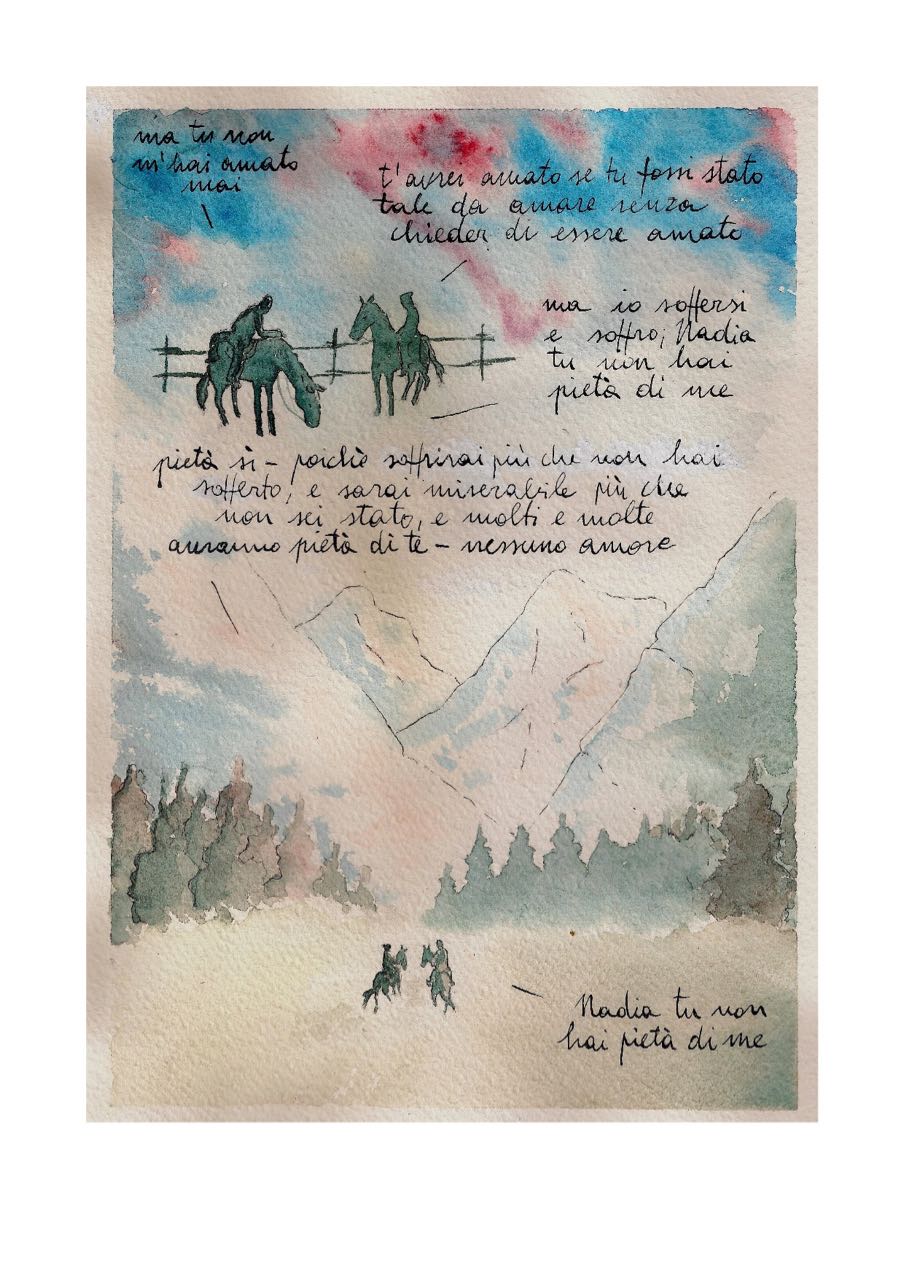 ma tu non
m'hai amato
mai
t'avrei amato se tu fossi stato
tale da amare senza
chieder di essere amato
ma io soffersi
e soffro; Nadia
tu non hai
pietà di me
pietà sì – poichè soffrirai più che non hai
sofferto, e sarai miserabile più che
non sei stato, e molti e molte
avranno pietà di te – nessuno amore
Nadia tu non
hai pietà di me